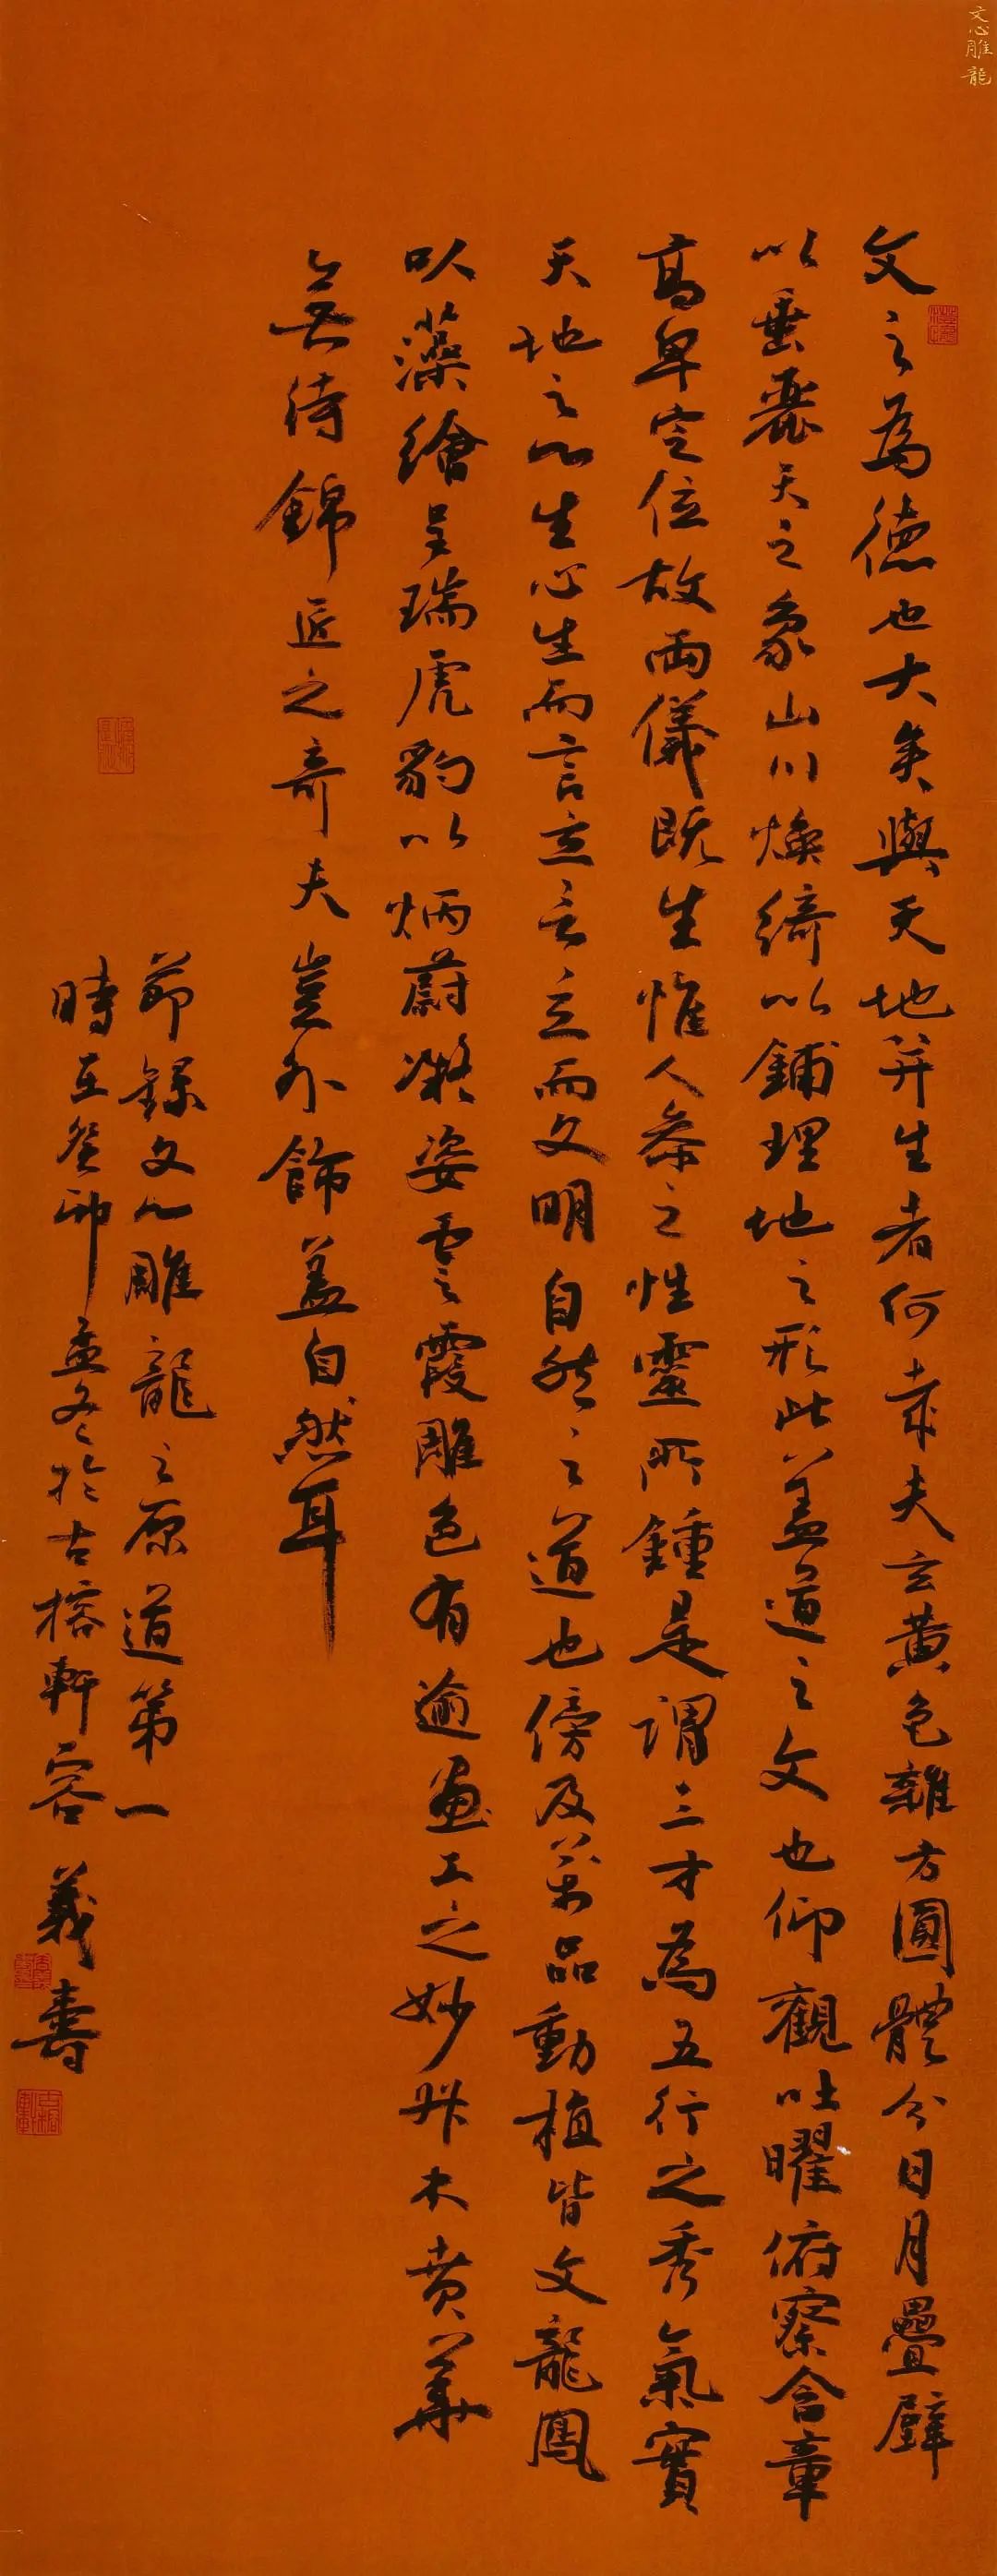 文心雕龍
文之為德也大矣與天地并生者何哉夫玄黃色雜方圓體分日月疊璧
以垂麗天之象山川煥綺以鋪理地之形此蓋道之文也仰觀吐曜俯察含章
高卑定位故兩儀既生惟人參之性靈所鍾是謂三才為五行之秀氣實
天地之心生心生而言立言立而文明自然之道也傍及萬品動植皆文龍鳳
以藻繪呈瑞虎豹以炳蔚凝姿雲霞雕色有逾畫工之妙草木賁華
無待錦匠之奇夫豈外飾蓋自然耳
節錄文心雕龍之原道第一
時在癸卯孟冬於古榕軒容義壽